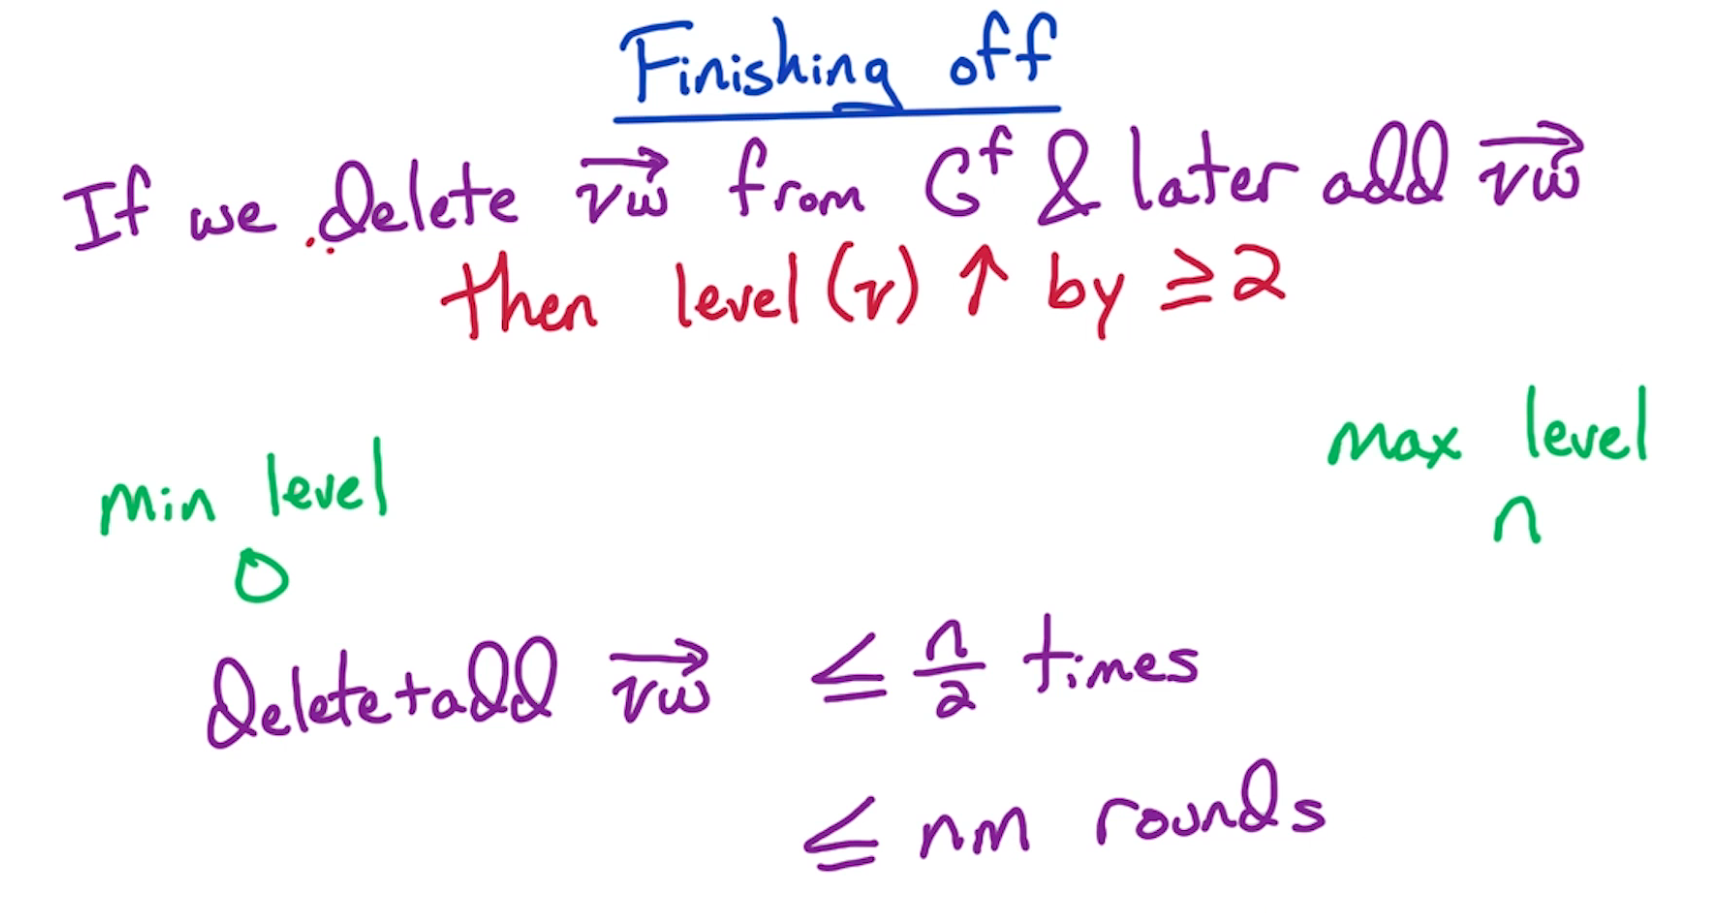 Finishing off
If we delete v⃗w from Gᶠ & later add v⃗w
then level(v) ↑ by ≥ 2
min level
max level
0
n
Delete + add v⃗w ≤ n/2 times
≤ nm rounds